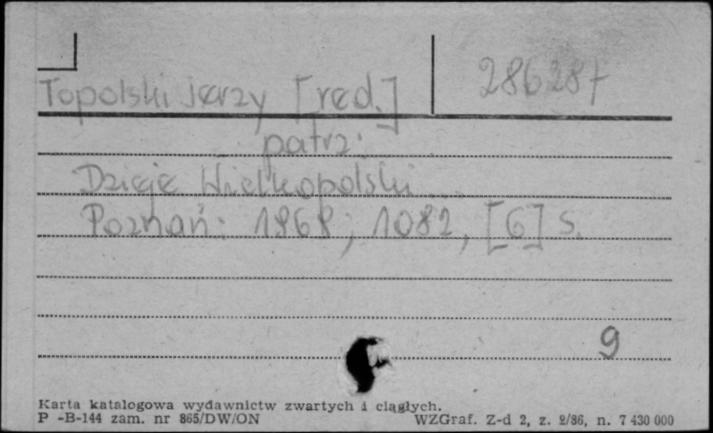 286287
Topolski Jerzy [red.]
patrz:
Dzieje Wielkopolski ...
Poznań: 1968; 1082, [6] s.
9
Karta katalogowa wydawnictw zwartych i ciągłych.
P -B-144 zam. nr 865/DW/ON WZGraf. Z-d 2, z. 2/86, n. 7 430 000